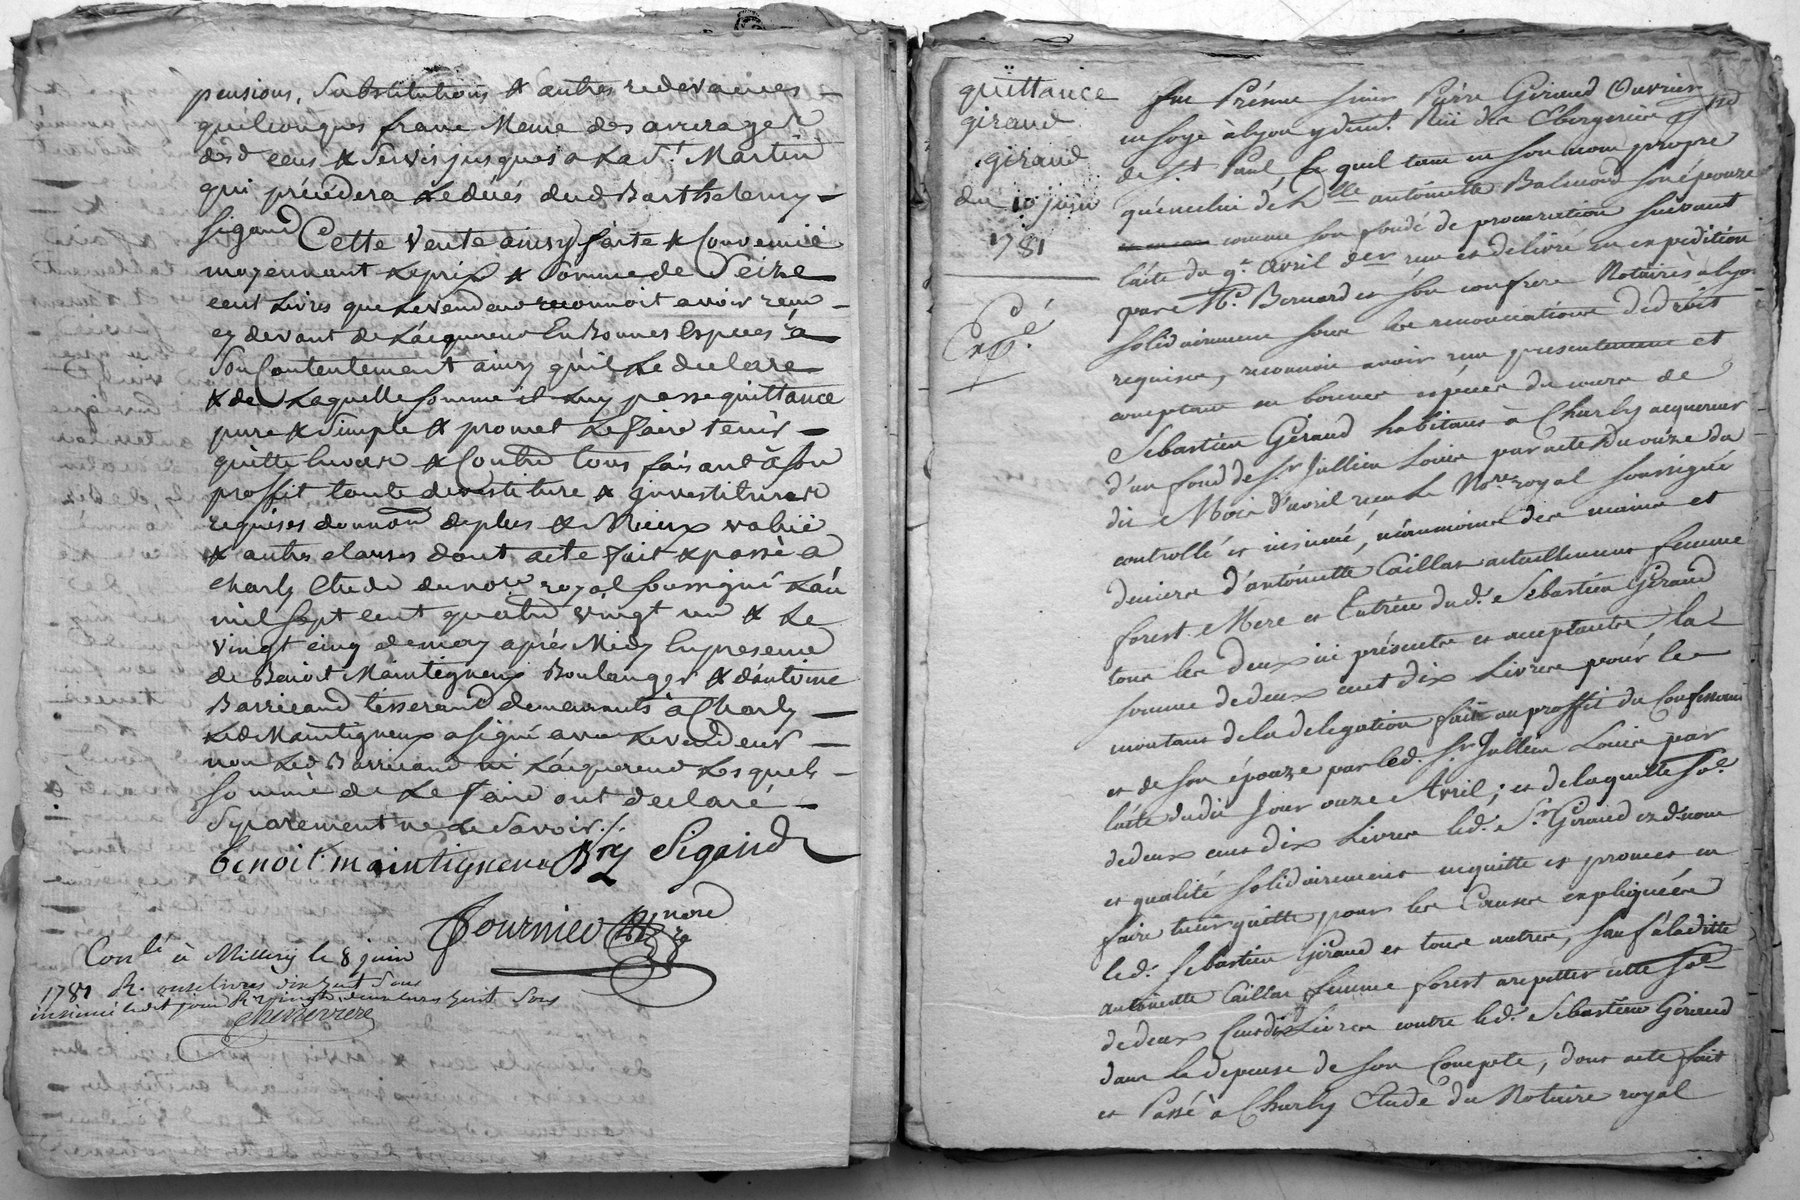 pensions, Substitutions & autres redevances
quelconques franc Meme des arrerages
desd cens & Servis jusques a La St Martin
qui précédera Le déces dud Barthelemy
Sigaud Cette Vente ainsy faite & Convenüe
moyennant Le prix & Somme de Seize
cent Livres que Le vendeur reconnoit avoir reçu
cy devant de L'acquereur En Bonnes Especes à
Son Contentement ainsy qu'il Le declare
& de Laquelle Somme il Luy passe quittance
pure & Simple & promet Le faire tenir
quitte Envers & Contre tous faisant à son
proffit toute devestiture & investitures
requises donnon de plus & Mieux valüe
& autres clauses dont acte fait & passé a
Charly Etude du nore royal soussigné L'an
mil sept cent quatre vingt un & Le
vingt cinq de may aprés Midy En presence
de Benoit Maintigneux Boulanger & d'antoine
Barricand tisserand demeurants à Charly
Led Maintigneux a signé avec Le vendeur
non Led Barricand ni L'acquereur Lesquels
Sommé de Le faire ont declaré
Separement ne Le Savoir ./.
benoit maintigneux Bry Sigaud
Fournier nore
Conlé à Millery le 8 juin
1781 R. onse livres dix huit sous
insinué ledit jour R vingt livres huit sous
quittance
giraud
giraud
du 10 juin
1781
fut Présent sieur Pierre Giraud Ouvrier
en soye à lyon y demt. Rüe des Ebergeries psse
de St Paul, Lequel tant en son nom propre
qu'en celui de Dlle antoinette Balmond son épouze
comme son fondé de procuration suivant
l'acte du 9e Avril der reçu et délivré en expédition
par Me. Bernard et son confrere Notaires à lyon
solidairement sous les renonciations de droit
requises, reconnoit avoir reçu presentement et
comptant en bonnes espéces du cours de
Sébastien Giraud habitant à Charly acquereur
d'un fond de Sr Jullien Louis par acte du onze du
dit Mois d'avril reçu Le Nore. royal soussigné
controllé et insinué, néanmoins des mains et
deniers d'antoinette Caillat actuellement femme
forest Mere et Tutrice dud. Sebastien Giraud
tous les deux ici présents et acceptants, la
somme de deux cent dix Livres pour le
montant de la delegation faite au proffit du Confessant
et de son épouze par led. Sr Jullien Louis par
l'acte dudit Jour onze Avril; et de laquelle Soe.
de deux cent dix Livres led. Sr. Giraud ez d. nom
et qualité solidairement acquitte et promet en
faire tenir quitte pour les Causes expliquées
led. Sebastien Giraud et tous autres, sauf à ladite
antoinette Caillat femme forest a repetter cette Soe
de deux Cent dix Livres contre led. Sebastien Giraud
dans la depense de son Compte, dont acte fait
et Passé à Charly Etude du Notaire royal